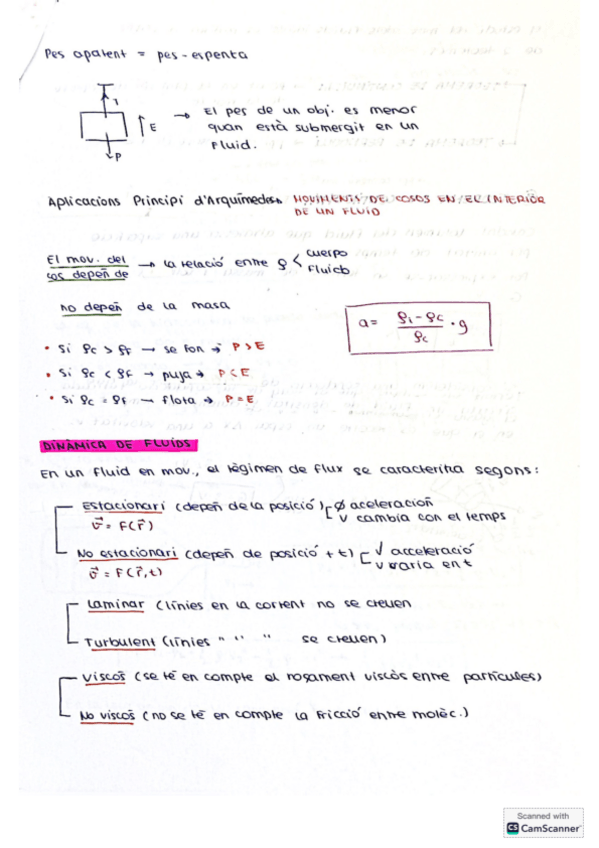 Pes aparent = pes - espenta
T
E
P
→ El pes de un obj. es menor
quan està submergit en un
Fluid.
Aplicacions Principi d'Arquimedes → MOVIMENTS DE COSOS EN EL INTERIOR
DE UN FLUID
El mov. del
cos depèn de → la relació entre ρ < cuerpo
Fluido
no depèn de la masa
a = ρi - ρc / ρc · g
• Si ρc > ρf → se fon → P > E
• Si ρc < ρf → puja → P < E
• Si ρc = ρf → flota → P = E
DINÀMICA DE FLUIDS
En un fluid en mov., el règimen de flux se caracteritna segons:
Estacionari (depèn de la posició) ∅ aceleración
v⃗ = F(r⃗) v cambia con el temps
No estacionari (depèn de posició + t) √ acceleració
v⃗ = F(r⃗,t) v varia en t
Laminar (línies en la corrent no se creuen
Turbulent (línies " " " se creuen)
Viscós (se té en compte el rosament viscòs entre partícules)
No viscós (no se té en compte la fricció entre molèc.)
Scanned with
CS CamScanner